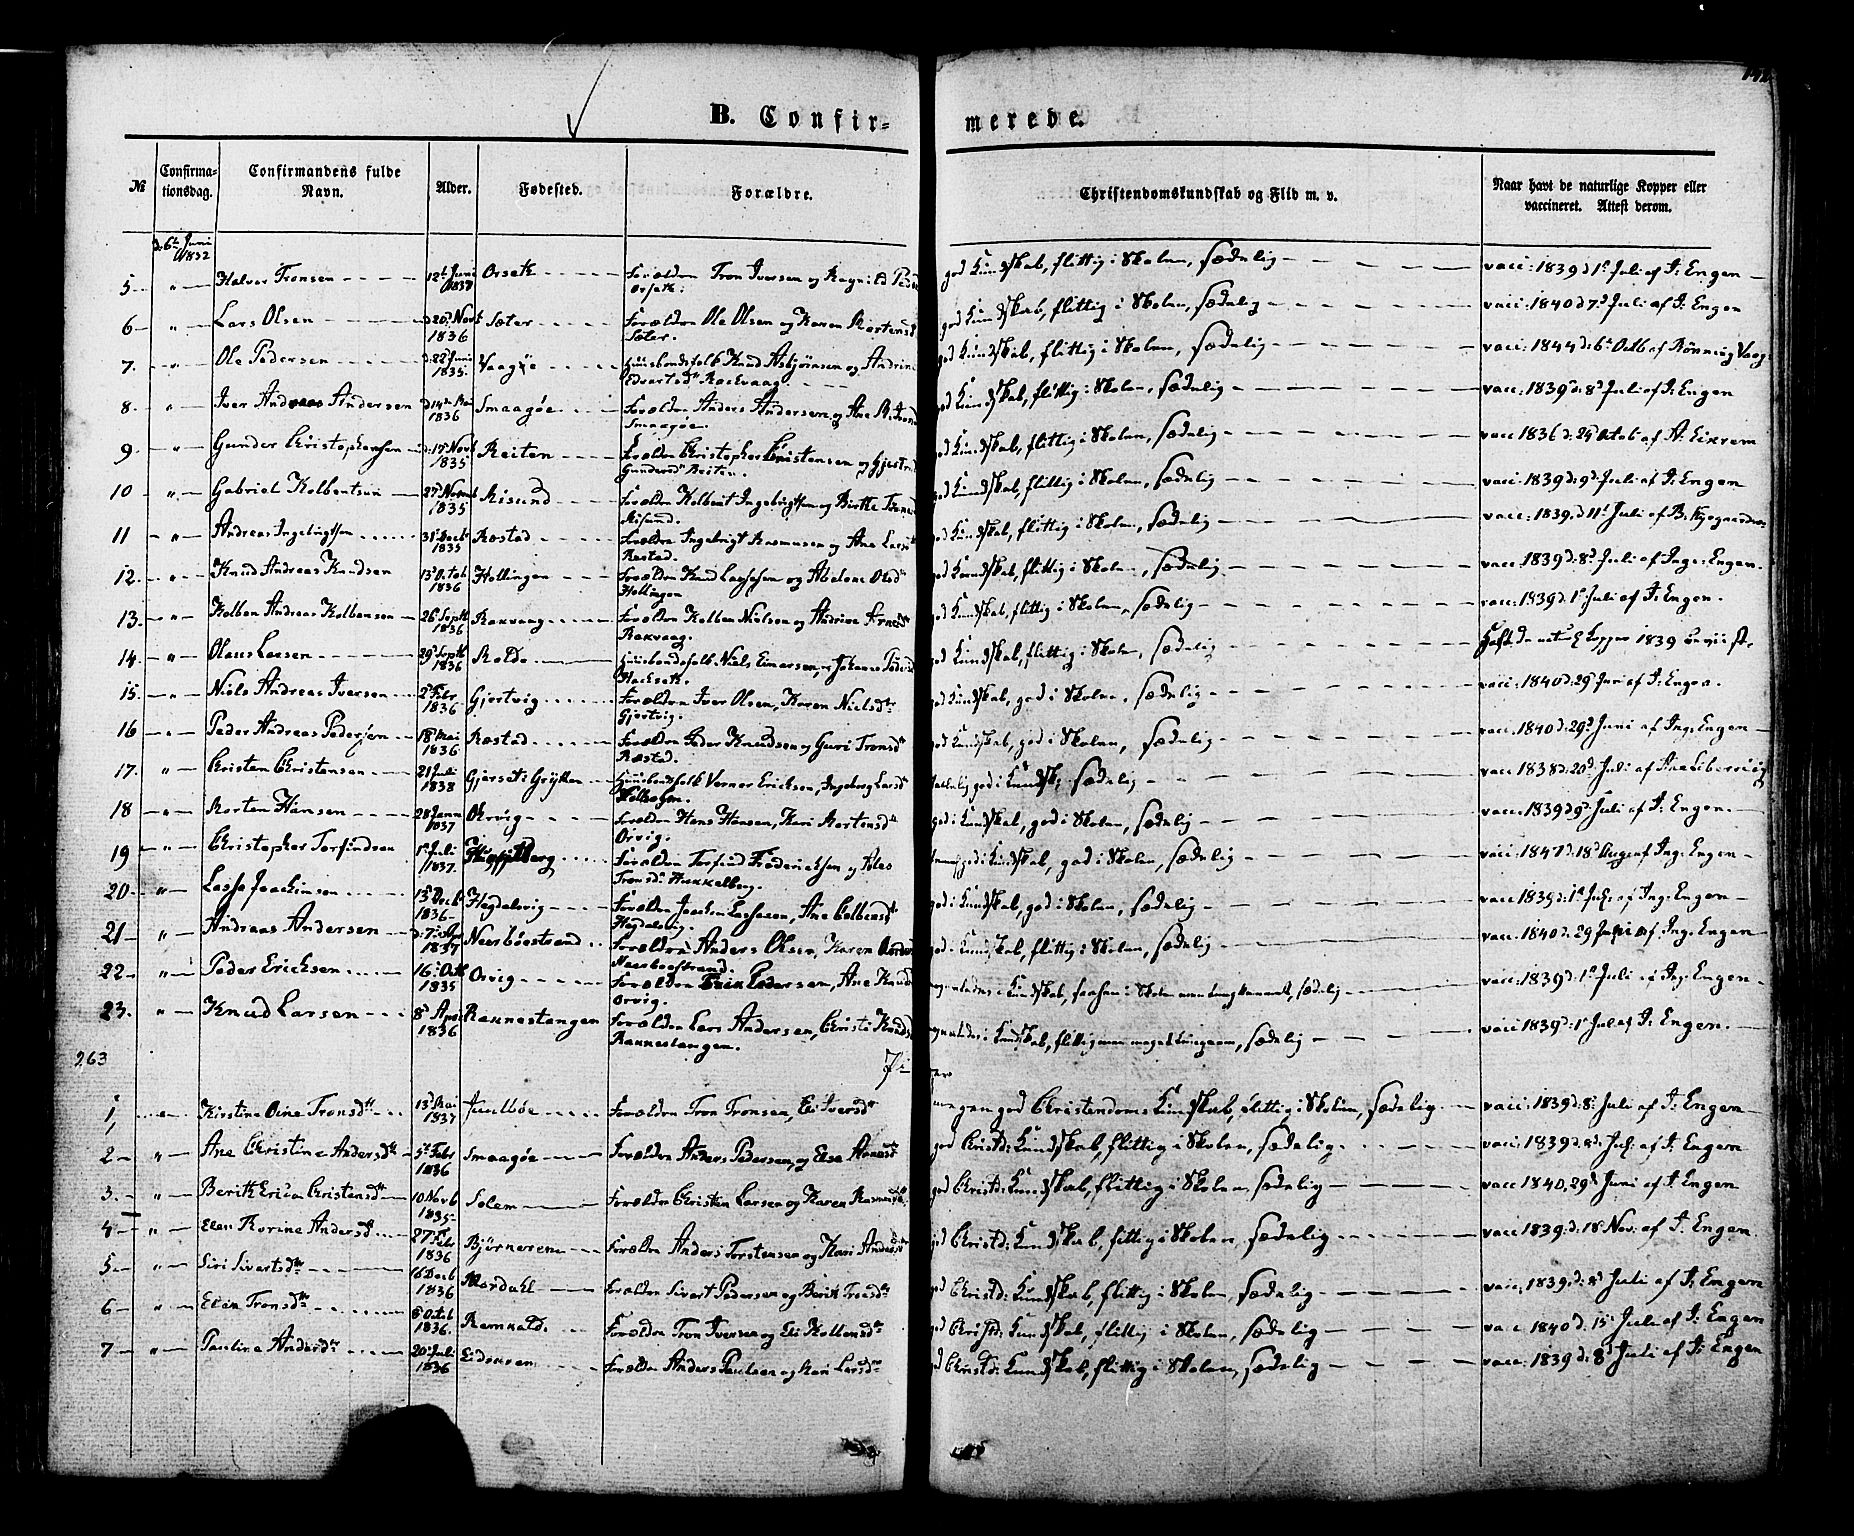 B. Confir-
merede.
№
Confirma-
tionsdag.
Confirmandens fulde
Navn.
Alder.
Fødested.
Forældre.
Christendomskundskab og Flid m. v.
Naar havt de naturlige Kopper eller
vaccineret. Attest derom.
5 " Halvor Tronsen 12t Juni 1837 Orseth Forældre Tron Iversen og Ragnild Peders Orseth. god Kundskab, flittig i Skolen, sædelig vacc: 1839 d 1st Juli af I: Engen
6 " Lars Olsen d 20 Novb 1836 Sæter Forældre Ole Olsen og Karen Mortensd Sæter. god Kundskab, flittig i Skolen, sædelig vacc: 1840 d 7d Juli af I: Engen
7. " Ole Pedersen d: 22 Juni 1835. Vaagøe Huusbondsfolk Knud Asbjørnsen og Andrine Edvartsd Rackvaag god Kundskab, flittig i Skolen, sædelig vacc: 1844 d: 6t Octb af Rønning Vaagøe
8 " Iver Andreas Andersen 1836 Smaagøe Forældre Anders Andersen og Ane Smaagøe. god Kundskab, flittig i Skolen, sædelig vacc: 1839 d: 8d Juli af I: Engen
9 " Gunder Christophersen d: 15 Novb 1835 Reiten Forældre Christopher Christensen og Gjertrud Gundersd Reiten. god Kundskab, flittig i Skolen, sædelig vacc 1836 d: 24 Octob af A. Eikrem
10 " Gabriel Kolbentsen 27 Novemb 1835 Misund Forældre Kolbent Ingebrigtsen og Birthe Misund. god Kundskab, flittig i Skolen, sædelig vacc: 1839 d: 9d Juli af I: Engen
11 " Andreas Ingebrigtsen 31 Decb 1835 Røstad Forældre Ingebrigt Rasmussen og Ane Larsd Røstad. god Kundskab, flittig i Skolen, sædelig vacc: 1839. d 11t Juli af B.
12. " Knud Andreas Knudsen 13 Octob 1836 Hollingen Forældre Knud Lassesen og Abelone Olsd Hollingen god Kundskab, flittig i Skolen, sædelig vacc: 1839 d: 8d Juli af Ing: Engen.
13. " Kolben Andreas Kolbensen 26 Septb 1836 Rakvaag Forældre Kolben Nielsen og Andrine Arnesd Rakvaag. god Kundskab, flittig i Skolen, sædelig vacc: 1839 d. 1st Juli af I: Engen.
14 " Olaus Larsen 29 Septb 1836 Molde Huusbondsfolk Niels Einarsen, Johanne Pedersd Hackseth. god Kundskab, flittig i Skolen, sædelig Havt de nat: Kopper 1839
15. " Niels Andreas Iversen 2 Febr 1836 Gjertvig Forældre Iver Olsen, Karen Nielsdtr Gjertvig. god Kundskab, god i Skolen, sædelig vacc: 1840 d: 29 Juni af I: Engen.
16 " Peder Andreas Pedersen 18 Mai 1836 Røstad Forældre Peder Knudsen og Guri Tronsd Røstad. god Kundskab, god i Skolen, sædelig vacc. 1840 d: 29d Juni af Ing: Engen
17. " Cristen Christensen 21 Juli 1838 Gjerset: Grytten Huusbondsfolk Verner Ericksen, Ingeborg Larsd god i Kundsk; sædelig vacc 1838 d: 20d Juli af
18 " Morten Hansen 28 Janu 1837 Orvig Forældre Hans Hansen, Kari Mortensd Orvig. god i Kundskab, god i Skolen, sædelig vacc: 1839 d 9d Juli af I: Engen.
19 " Christopher Torfindsen 1 Juli 1837. Forældre Torfind Frederichsen og Tronsd Hukkelberg. god i Kundskab, god i Skolen, sædelig vacc: 1847 d: 18d Aug af Ing: Engen
20 " Lasse Joachimsen 13 Decb 1836 Hegdalvig Forældre Joachim Lassesen, Ane Colbensd Hegdalvig. god i Kundskab, god i Skolen, sædelig vacc: 1839 d: 1st Juli af Ing: Engen
21 " Andreas Andersen d: 7d Ap 1837 Neerbøestrand Forældre Anders Olsen, Karen Neerbøestrand. god i Kundskab, flittig i Skolen, sædelig vacc: 1840 d. 29 Juni af Ing: Engen
22 " Peder Ericksen 16 Octb 1835 Orvig Forældre Erik Pedersen, Ane Knuds Orvig. Kundskab, i Skolen sædelig vacc: 1839 d: 1st Juli af Ing: Engen
23. " Knud Larsen 8d Apr 1836 Rannestangen Forældre Lars Andersen, Christi Knudsd Rannestangen. i Kundskab, flittig men meget sædelig vacc: 1839 d: 1st Juli af I: Engen.
263
1, Kirstine Oline Tronsdtr 13d Mai 1837 Juulbøe Forældre Tron Tronsen, Eli Iversdtr god Christendoms Kundskab, flittig i Skolen, sædelig vacc: 1839 d: 8d Juli af I: Engen
2 " Ane Christine Andersdtr 5t Febr 1836 Smaagøe Forældre Anders Pedersen og Else Arnesd god Christd: Kundskab, flittig i Skolen, sædelig vacc: 1839 d. 8d Juli af I: Engen
3. " Berith Erica Christensdtr 10 Novb 1835 Solem Forældre Christen Larsen og Karen Rasmusd god Christd: Kundskab, flittig i Skolen, sædelig vacc 1840, 29d Juni af I: Engen
4 " Elen Karine Andersd 27 Febr 1836 Bjørnerem Forældre Anders Torstensen og Kari Andersd god Christd: Kundskab, flittig i Skolen, sædelig vacc: 1839 d: 18 Nov: af I: Engen.
5 " Siri Sivertsdtr 16 Decb 1836 Mordahl Forældre Sivert Pedersen og Berith Tronsdtr god Christd: Kundskab, flittig i Skolen, sædelig vacc; 1839, d: 8d Juli af I: Engen
6 " Elen Tronsdtr 8 Octob 1836. Forældre Tron Iversen og Eli Kolbensdtr god Christd: Kundskab, flittig i Skolen, sædelig vacc 1840 d: 15 Juli af I: Engen
7 " Pauline Andersdtr 20 Juli 1836 Eidsrem Forældre Anders Paulsen og Kari Larsdtr god Christd: Kundskab, flittig i Skolen, sædelig vacc: 1839 d: 8d Juli af I: Engen